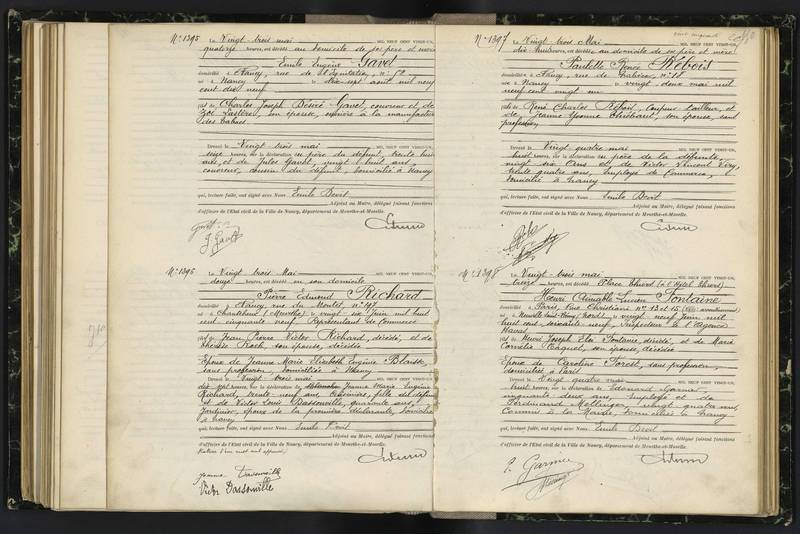 N° 1395 Le Vingt trois mai MIL NEUF CENT VINGT-UN,
quatorze heures, est décédé au domicile de ses père et mère
Emile Eugène Gavet
domicilié à Nancy, rue de
né à Nancy le dix-sept août mil neuf
cent dix neuf
fils de Charles Joseph Désiré Gavet, couvreur et de
son épouse, ouvrière à la manufacture
des tabacs
Devant le Vingt trois mai MIL NEUF CENT VINGT-UN,
seize heures, sur la déclaration du père du défunt, trente huit
ans, et de Jules Gavet, vingt huit ans,
couvreur, cousin du défunt, domicilié à Nancy
qui, lecture faite, ont signé avec Nous Emile
Adjoint au Maire, délégué faisant fonctions
d'officier de l'Etat civil de la Ville de Nancy, département de Meurthe-et-Moselle.
J. Gavet
N° 1396 Le Vingt trois Mai MIL NEUF CENT VINGT-UN,
douze heures, est décédé en son domicile
Pierre Edmond Richard
domicilié à Nancy rue du Montet, n° 147
né à Chanteheux (Meurthe) le vingt six Juin mil huit
cent cinquante neuf, Représentant de Commerce
fils de Jean Pierre Victor Richard, décédé, et de
Thérèse Koch, son épouse, décédée
Epoux de Jeanne Marie Elisabeth Eugénie Blaise,
sans profession, domiciliée à Nancy
Devant le Vingt trois mai MIL NEUF CENT VINGT-UN,
dix sept heures, sur la déclaration de Jeanne Marie Eugénie
Richard, trente neuf ans, fille du défunt
et de Victor Louis Dassonville, quarante ans,
Jardinier, époux de la première déclarante, domiciliés
à Nancy
qui, lecture faite, ont signé avec Nous Emile
Adjoint au Maire, délégué faisant fonctions
d'officier de l'Etat civil de la Ville de Nancy, département de Meurthe-et-Moselle.
Rature d'un mot nul approuvée
Jeanne Dassonville
Victor Dassonville
N° 1397 Le Vingt trois Mai MIL NEUF CENT VINGT-UN,
dix heures, est décédée au domicile de ses père et mère
Paulette Renée Rébois
domiciliée à Nancy, rue de
née à Nancy le vingt deux mai mil
neuf cent vingt un
fille de René Charles Rébois, Coupeur tailleur, et
de Jeanne Yvonne son épouse, sans
profession
Devant le Vingt quatre mai MIL NEUF CENT VINGT-UN,
huit heures, sur la déclaration du père de la défunte,
vingt six ans et de Victor
trente quatre ans, Employé de Commerce,
domicilié à Nancy
qui, lecture faite, ont signé avec Nous Emile
Adjoint au Maire, délégué faisant fonctions
d'officier de l'Etat civil de la Ville de Nancy, département de Meurthe-et-Moselle.
N° 1398 Le Vingt trois mai MIL NEUF CENT VINGT-UN,
treize heures, est décédé Place Thiers (à l'Hôtel Thiers)
Henri Aimable Lucien Fontaine
domicilié à Paris, Rue Christiani N° 13 et 15
né à Neuville Saint-Rémy (Nord) le vingt neuf Juin mil
huit cent soixante neuf, Inspecteur à l'Agence
Havas
fils de Henri Joseph Elie Fontaine, décédé, et de Maria
Cornélie son épouse, décédée
Epoux de Caroline Forest, sans profession,
domiciliée à Paris
Devant le Vingt quatre mai MIL NEUF CENT VINGT-UN,
huit heures, sur la déclaration de Edouard Garnier,
cinquante deux ans, Employé et de
Ferdinand vingt quatre ans,
Commis à la Mairie, domiciliés à Nancy
qui, lecture faite, ont signé avec Nous Emile
Adjoint au Maire, délégué faisant fonctions
d'officier de l'Etat civil de la Ville de Nancy, département de Meurthe-et-Moselle.
E. Garnier